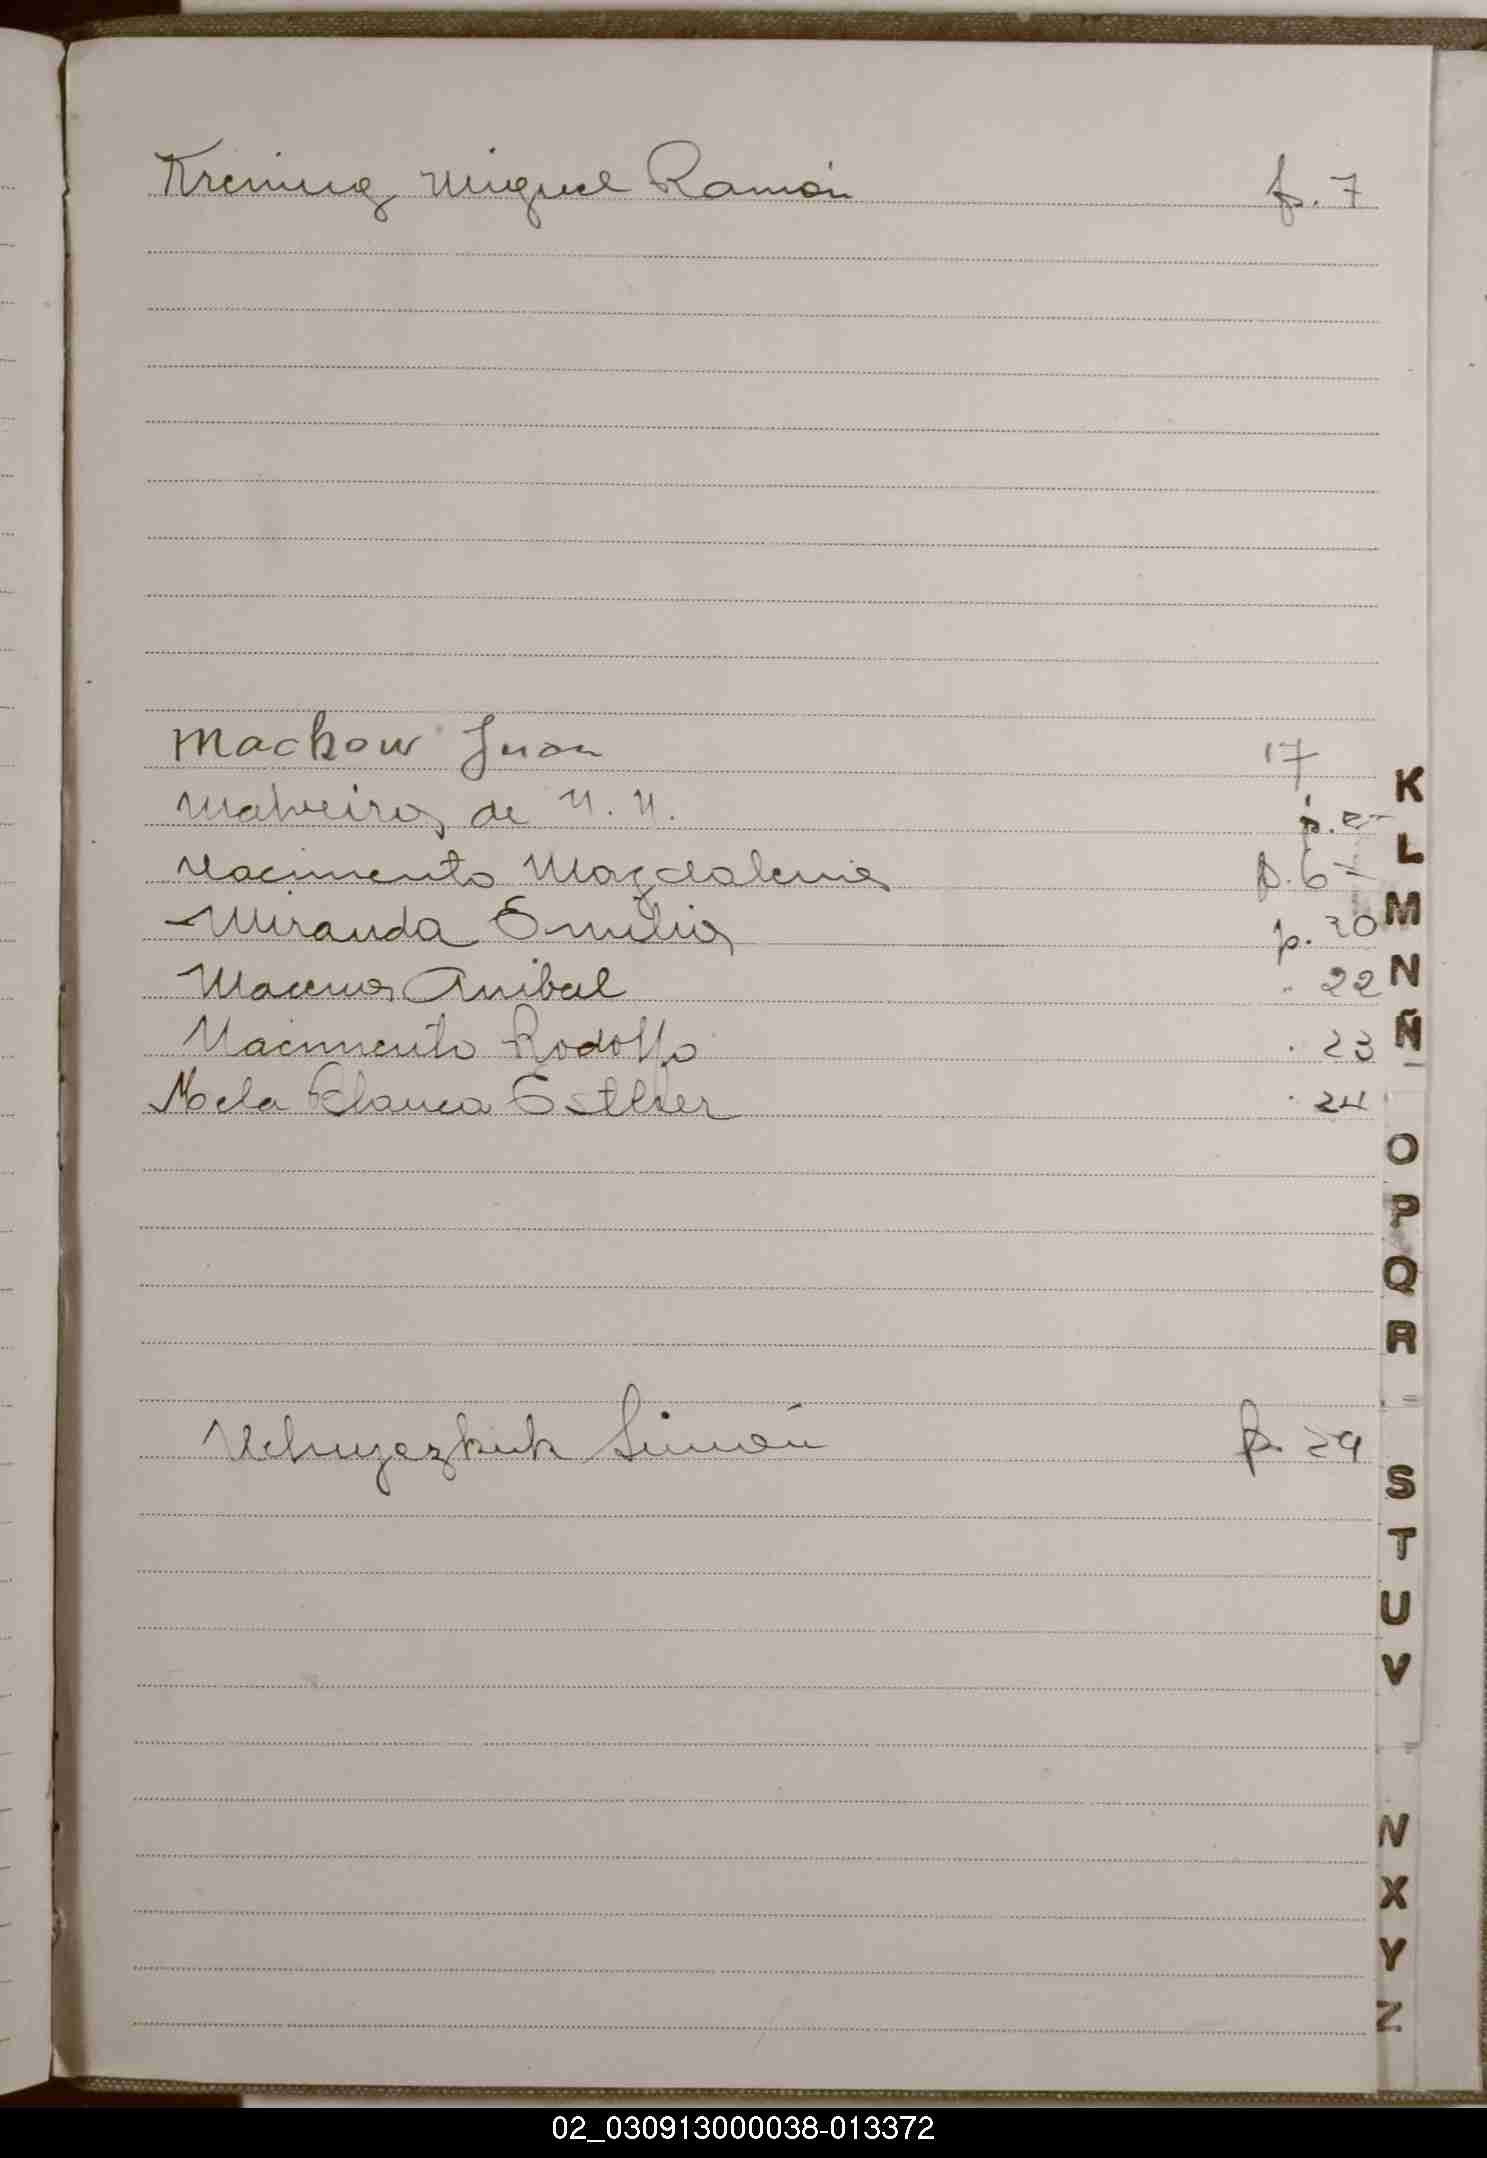 Krening Miguel Ramón p. 7
Mackow Juan 17
de N. N. p.
Nacimento Magdalena p. 6
Miranda Emilia p. 20
Anibal " 22
Nacimento Rodolfo " 23
Mela Blanca Esther " 24
Simón p. 29
K
L
M
N
Ñ
O
P
Q
R
S
T
U
V
X
Y
Z
02_030913000038-013372